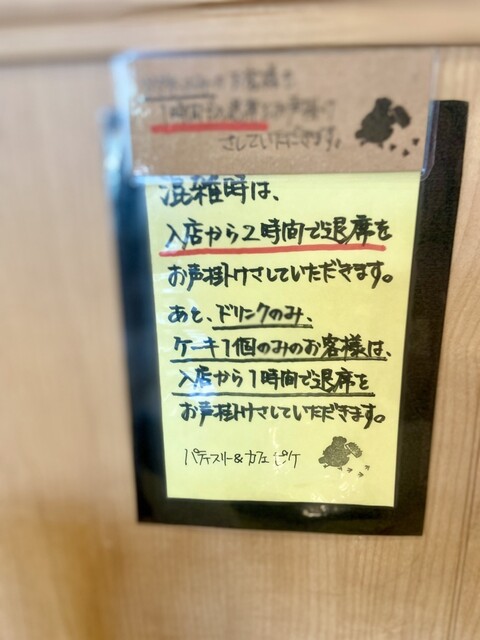 お客様を
1時間で退席をお声掛け
させていただきます。
混雑時は、
入店から2時間で退席を
お声掛けさしていただきます。
あと、ドリンクのみ、
ケーキ1個のみのお客様は、
入店から1時間で退席を
お声掛けさしていただきます。
パティスリー&カフェ ピケ